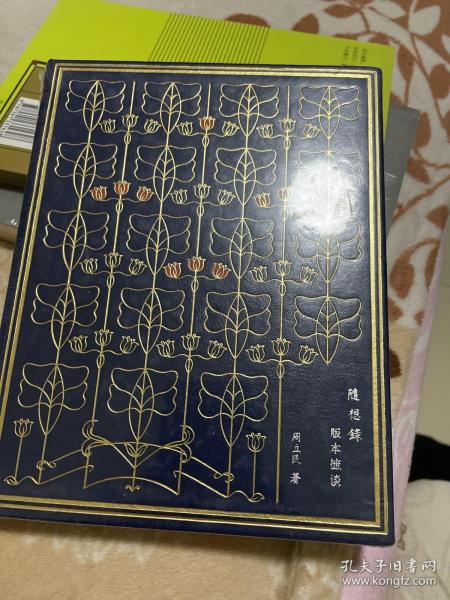 随想錄
版本摭谈
周立民 著
孔夫子旧书网
www.kongfz.com